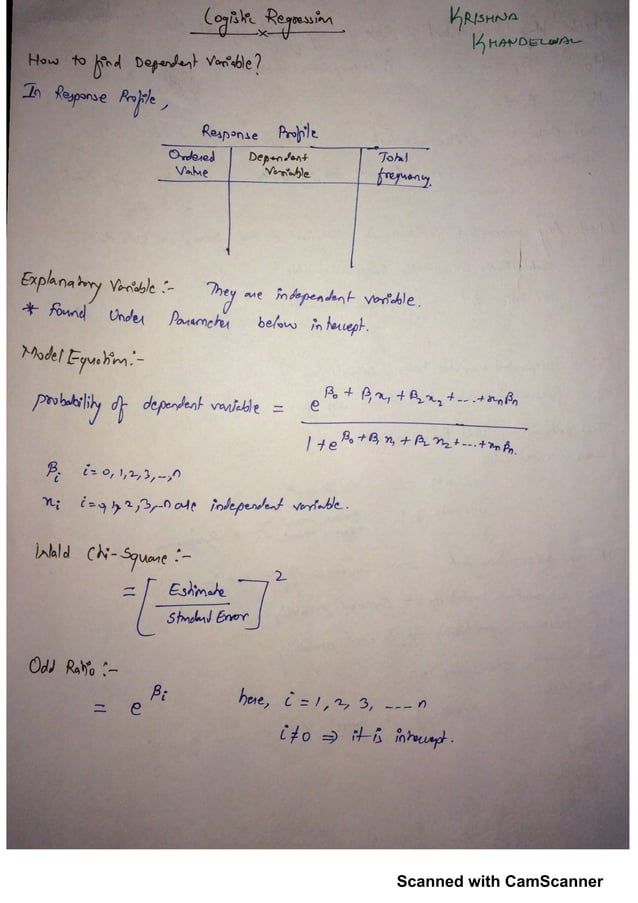 Logistic Regression
KRISHNA
KHANDELWAL
How to find Dependent Variable?
In Response Profile,
Response Profile
Ordered Value | Dependent Variable | Total frequency.
Explanatory Variable :- They are independent variable.
* Found Under Parameter below intercept.
Model Equation:-
probability of dependent variable = e^(β0 + β1x1 + β2x2 + ... + xnβn) / 1+e^(β0 + β1x1 + β2x2 + ... + xnβn.)
βi i=0,1,2,3,..,n
xi i=0,1,2,3,..n are independent variable.
Wald Chi-Square :-
= [Estimate / Standard Error]^2
Odd Ratio :-
= e^βi here, i = 1, 2, 3, ---- n
i≠0 ⇒ it is intercept.
Scanned with CamScanner